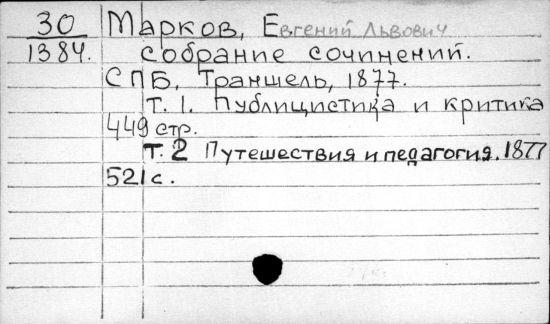 30 Марков, Евгений Львович
1384. Собрание сочинений.
СПБ, Траншель, 1877.
Т. 1. Публицистика и критика
449 стр.
Т. 2 Путешествия и педагогия. 1877
521 с.